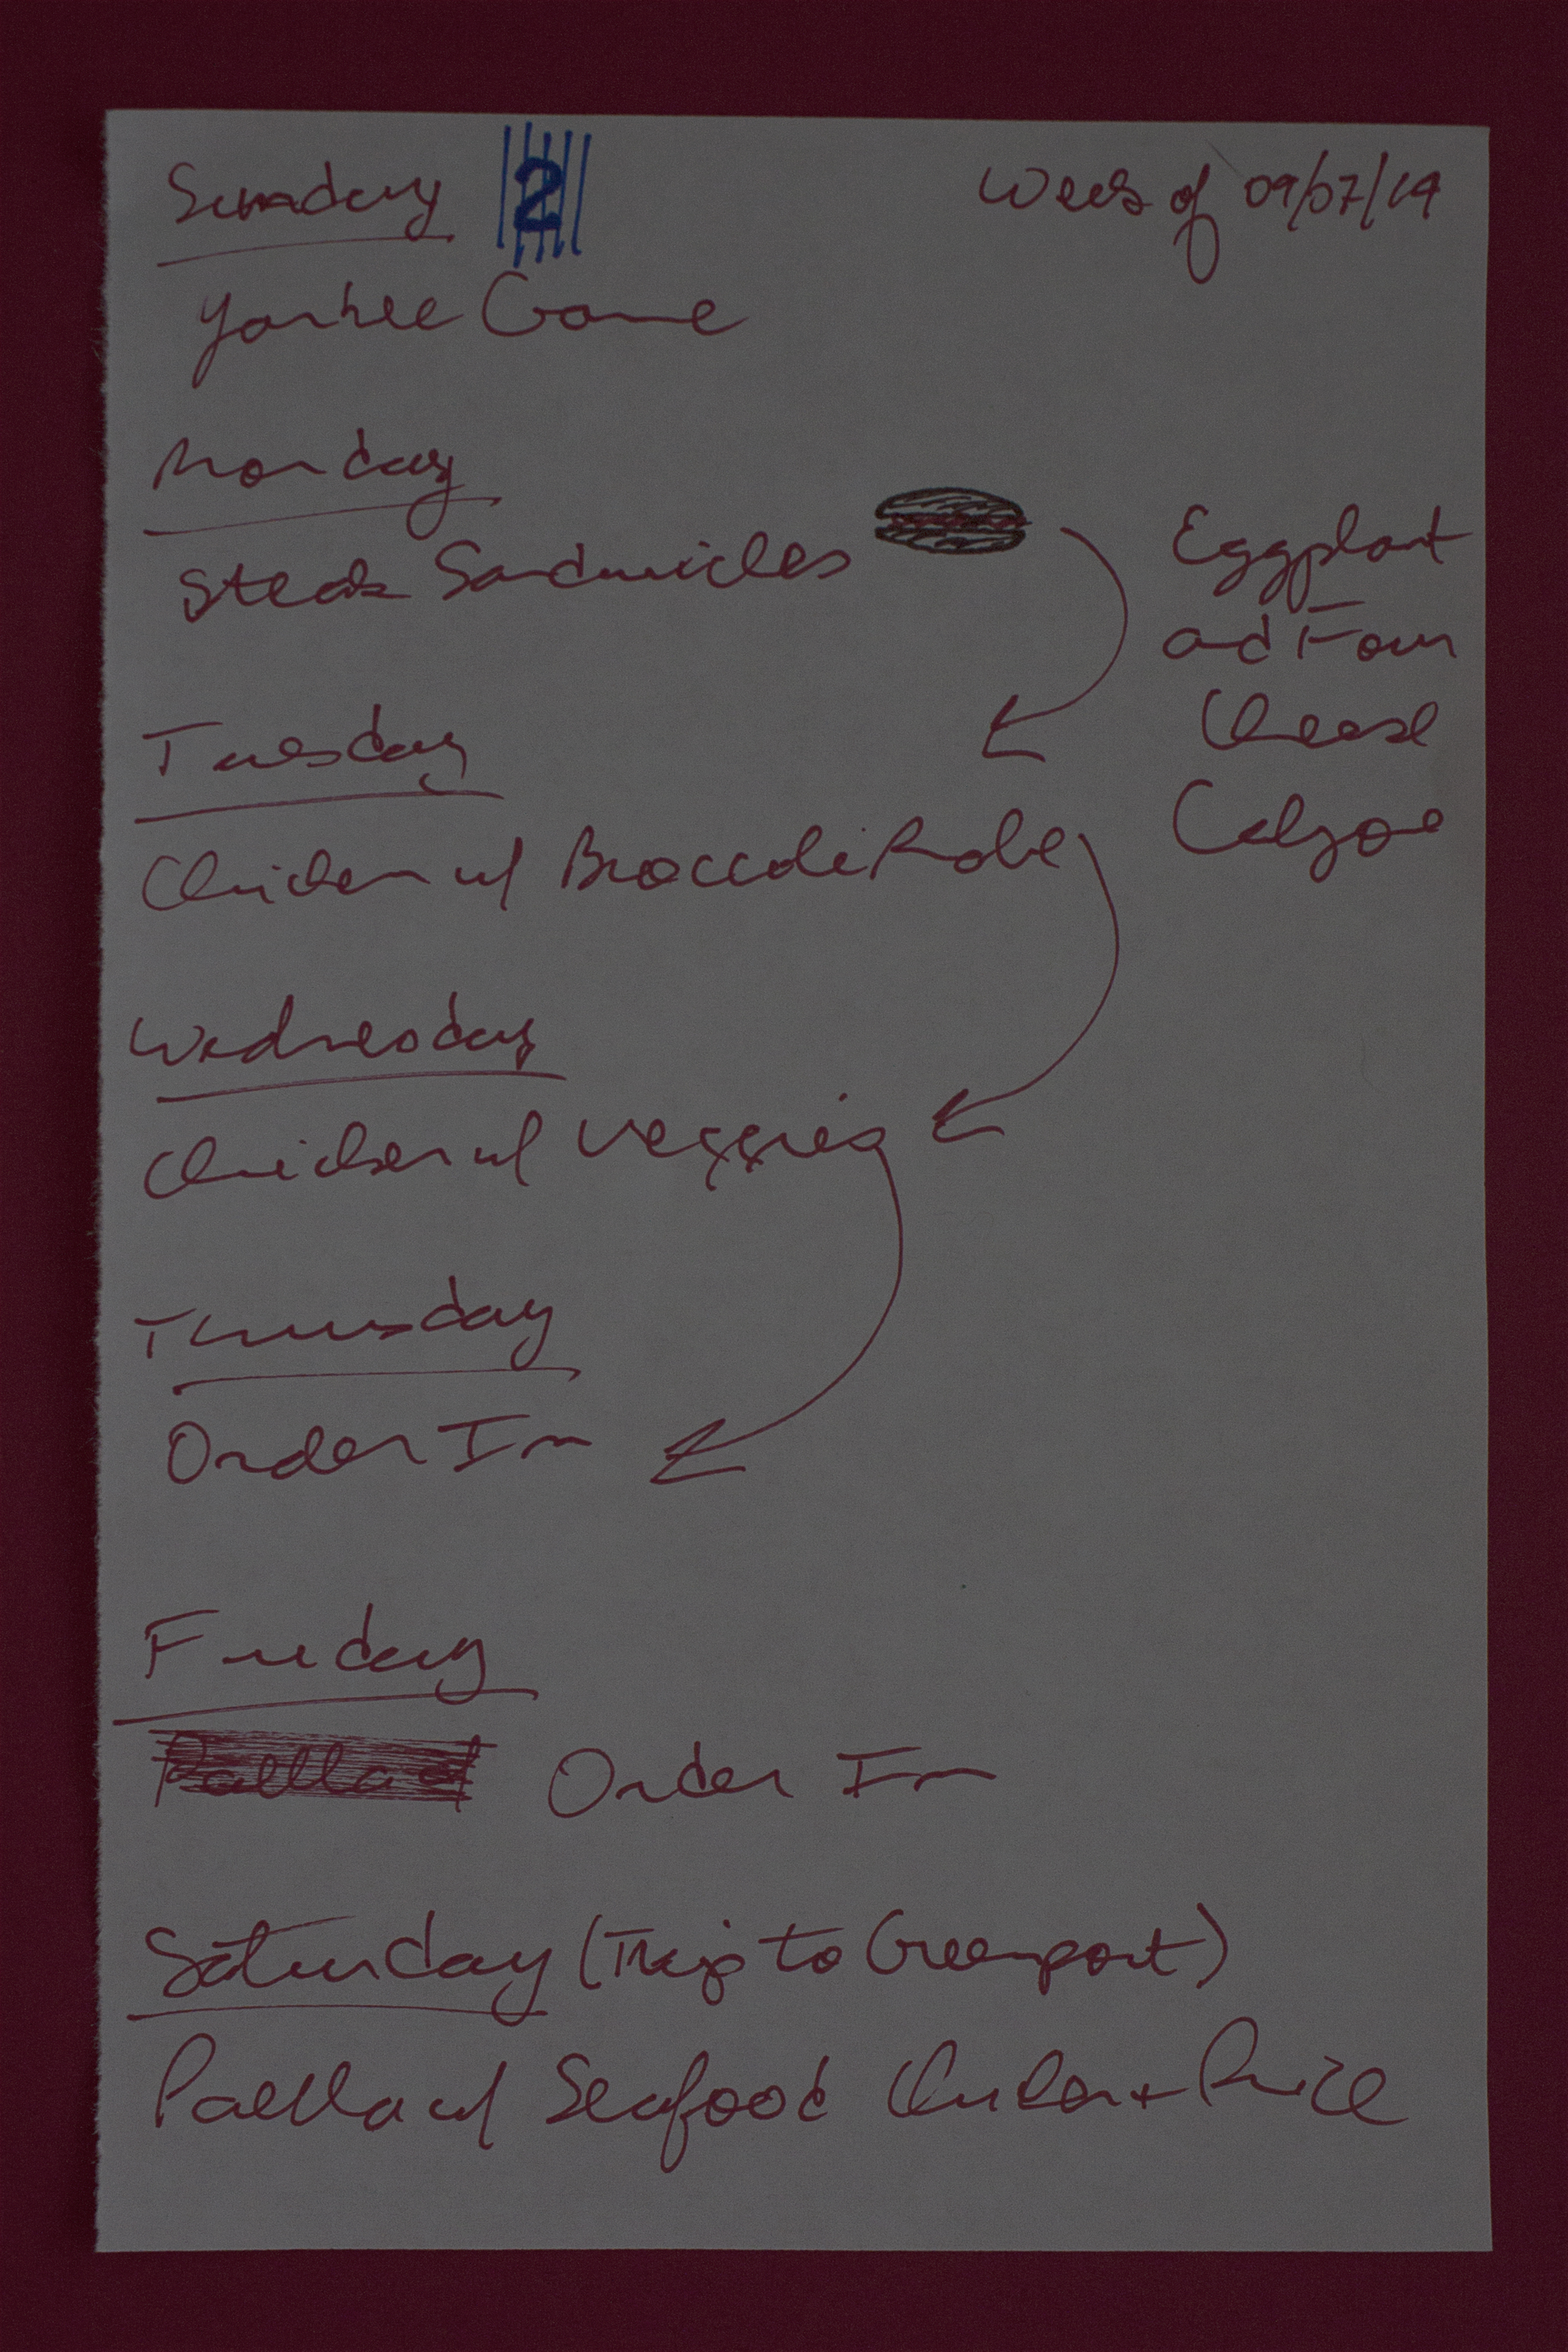 Sunday 2
Week of 09/07/14
Yankee Game
Monday
Steak Sandwiches
Eggplant
and Four
Cheese
Calzone
Tuesday
Chicken w/ Broccoli Rabe
Wednesday
Chicken w/ Veggies
Thursday
Order In
Friday
Paella w/ Order In
Saturday (Trip to Greenport)
Paella w/ Seafood Chicken + Rice